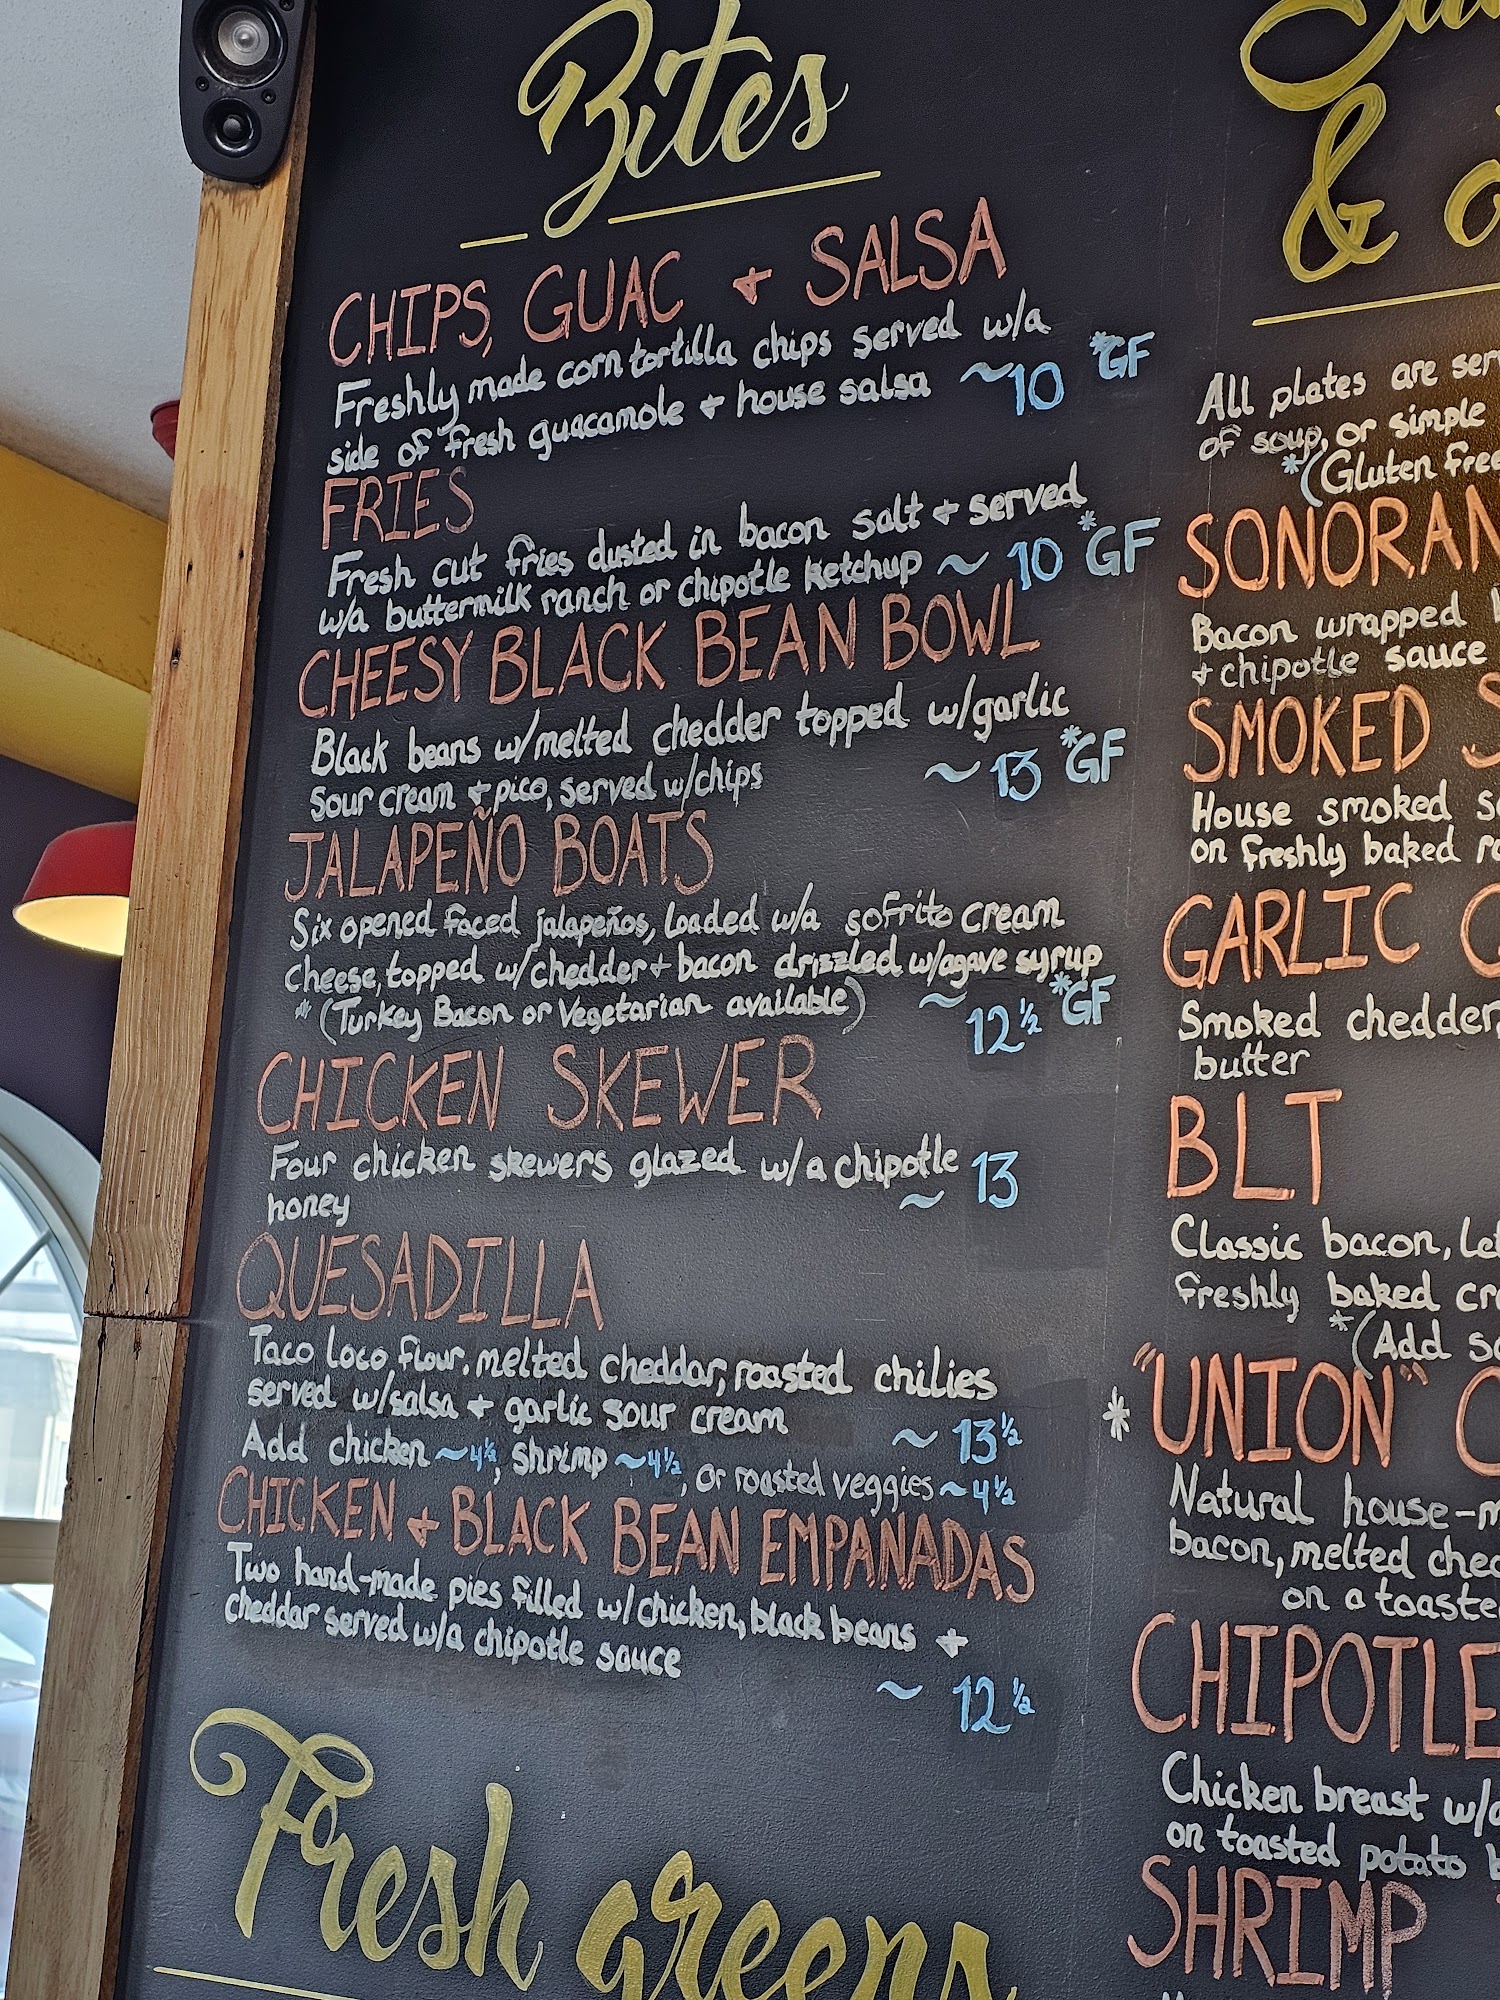 Bites
CHIPS, GUAC + SALSA
Freshly made corn tortilla chips served w/a
side of fresh guacamole + house salsa ~10 *GF
FRIES
Fresh cut fries dusted in bacon salt + served
w/a buttermilk ranch or chipotle ketchup ~ 10 *GF
CHEESY BLACK BEAN BOWL
Black beans w/melted chedder topped w/garlic
sour cream + pico, served w/chips ~13 *GF
JALAPEÑO BOATS
Six opened faced jalapeños, loaded w/a sofrito cream
cheese, topped w/chedder + bacon drizzled w/agave syrup
*(Turkey Bacon or Vegetarian available) ~12½ *GF
CHICKEN SKEWER
Four chicken skewers glazed w/a chipotle
honey ~ 13
QUESADILLA
Taco loco flour, melted cheddar, roasted chilies
served w/salsa + garlic sour cream ~ 13½
Add chicken ~4½, shrimp ~4½, or roasted veggies ~4½
CHICKEN + BLACK BEAN EMPANADAS
Two hand-made pies filled w/chicken, black beans +
cheddar served w/a chipotle sauce
~ 12½
Fresh greens
&
All plates are
of soup, or simple
*(Gluten free
SONORAN
Bacon wrapped
+ chipotle sauce
SMOKED
House smoked
on freshly baked
GARLIC
Smoked chedder,
butter
BLT
Classic bacon,
freshly baked
*(Add
* "UNION"
Natural house-
bacon, melted
on a
CHIPOTLE
Chicken breast
on toasted potato
SHRIMP